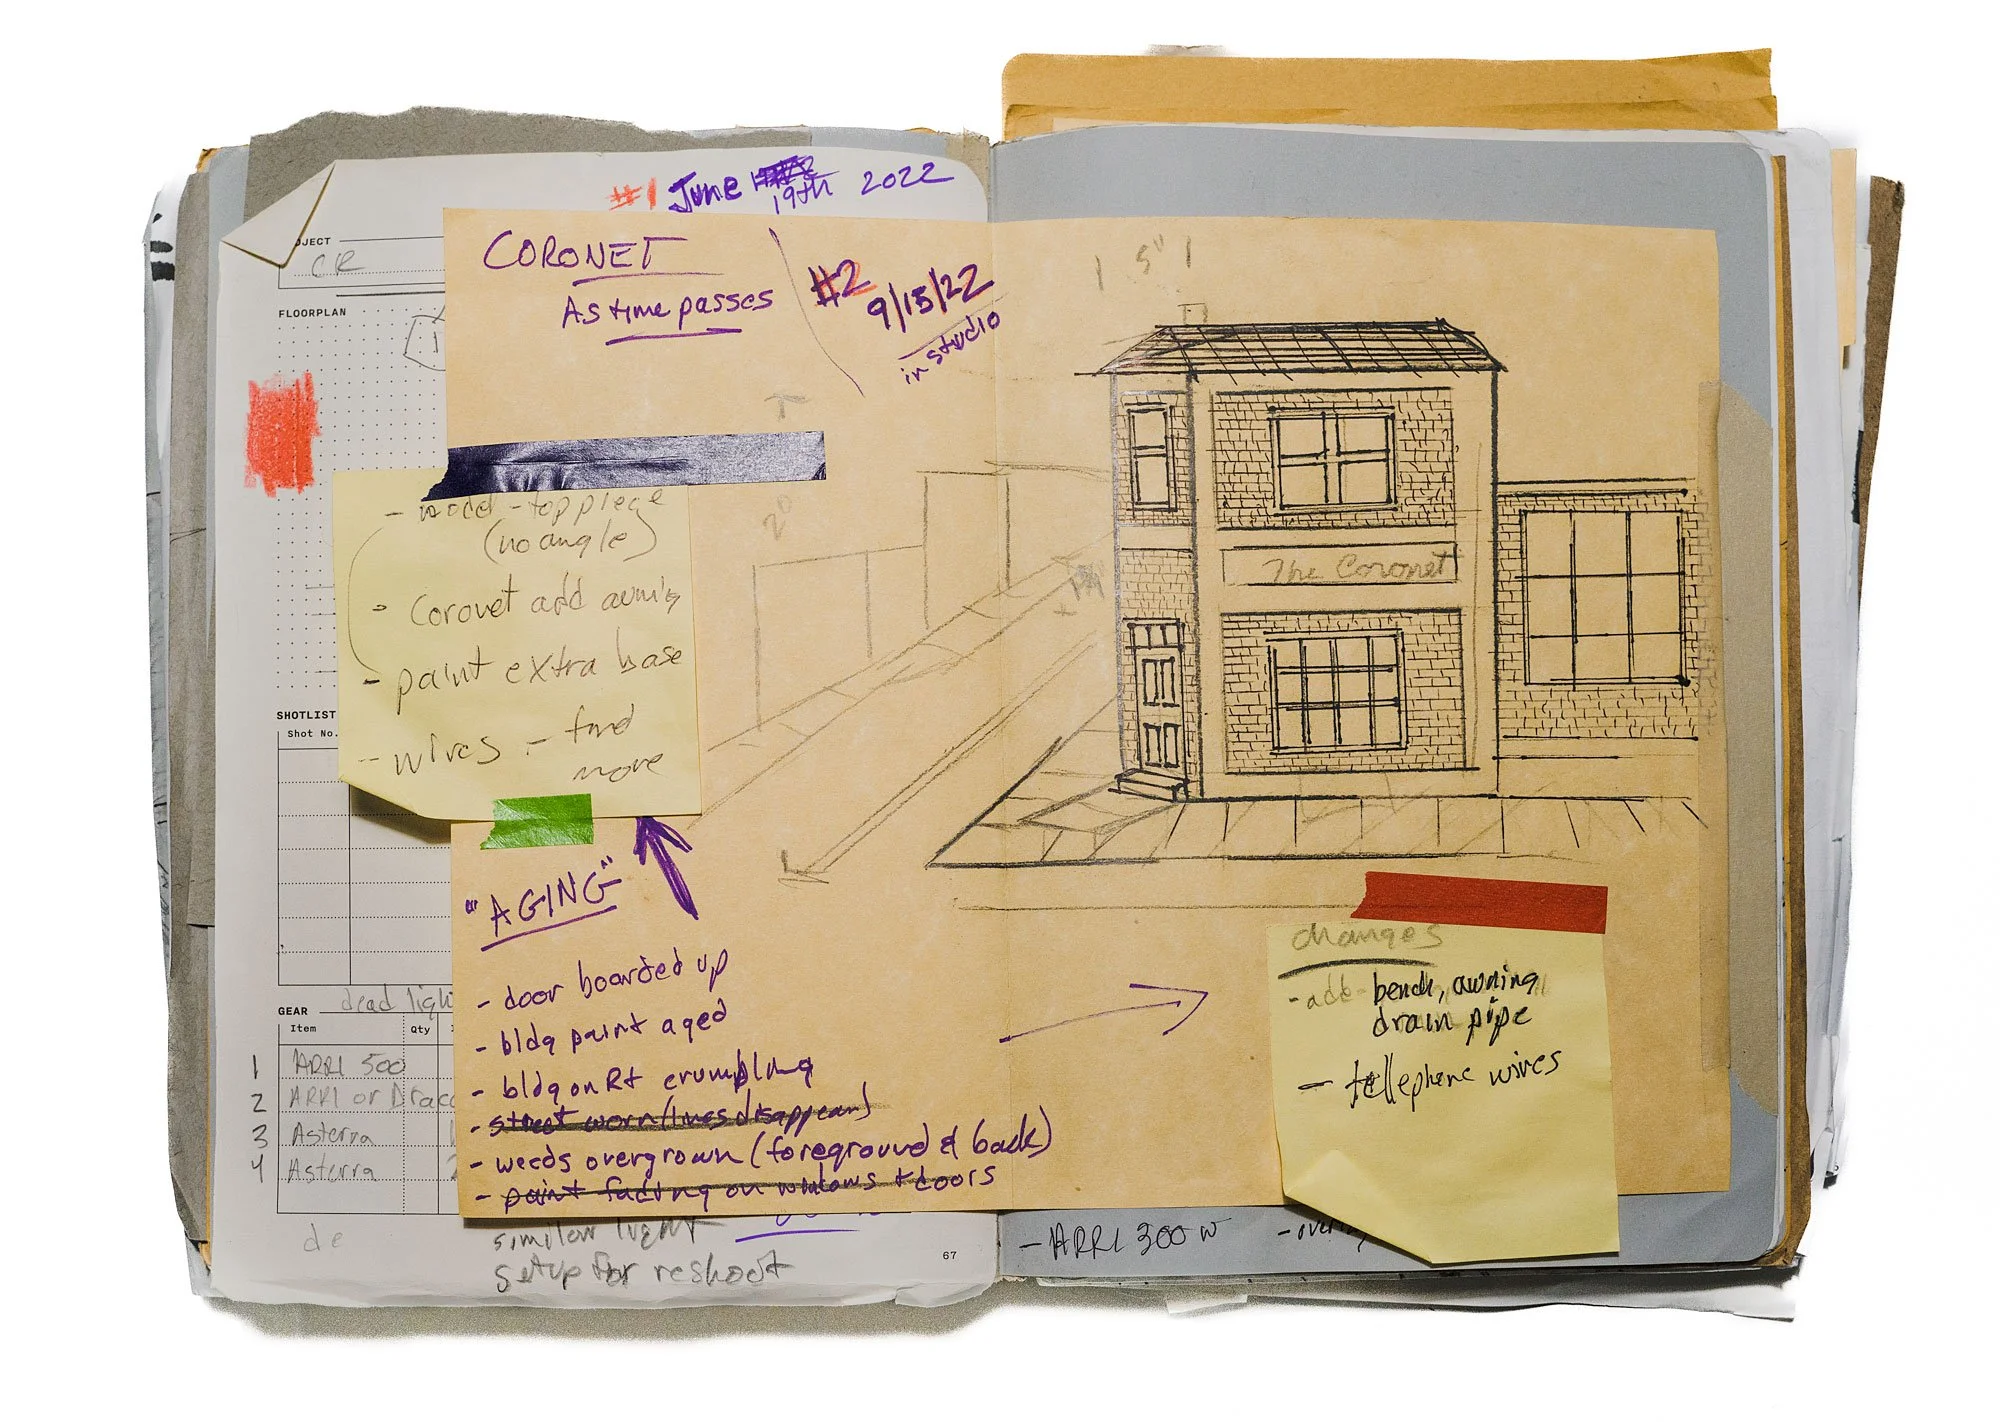 #1 June 19th 2022
CORONET
As time passes
#2
9/15/22
in studio
PROJECT
CR
FLOORPLAN
SHOTLIST
Shot No.
- wood - top piece
(no angle)
- Coronet add awning
- paint extra base
- wires - find
more
"AGING"
- door boarded up
- bldg paint aged
- bldg on Rt crumbling
- street worn (lines disappear)
- weeds overgrown (foreground & back)
- paint fading on windows + doors
GEAR
dead ligh
Item Qty
1 ARRI 500
2 ARRI or Drac
3 Asterra
4 Asterra 2
de
similar light
setup for reshoot
67
5"
2"
The Coronet
changes
- add bench, awning
drain pipe
- tellephone wires
- ARRI 300 w